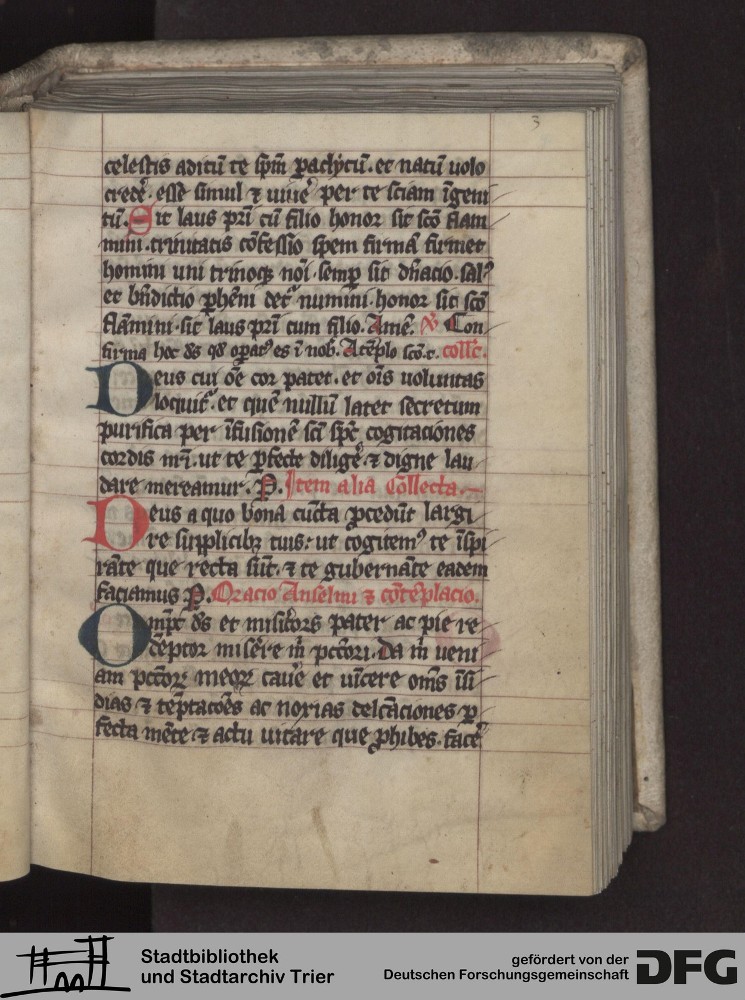 3
celestis aditū te sp̄m ꝑaclytū. et natū uolo
credeᷣ. esse simul ⁊ uiueᷣ per te sciam īgeni
tū. Sit laus pr̄i cū filio honor sit sc̄o flam
mini. trinitatis cōfessio spem firmā firmet
homini uni trinoqꝫ noī. semp̄ sit
et bn̄dictio numini. honor sit sc̄o
flāmini. sit laus pr̄i cum filio. Amē. Con
firma hoc ds̄ qd̄ opatꝰ es ī nob̄. A tēplo sc̄o. collc̄.
Deus cui oē cor patet. et oīs uoluntas
loquit᷑. et quē nullū latet secretum
purifica per īfusionē sc̄i sp̄c cogitacōnes
cordis nr̄i. ut te ꝑfecte diligeᷣ. ⁊ digne lau
dare mereamur. P. Item alia Collecta.
Deus a quo bona cūcta ꝓcedūt largi
re supplicibꝫ tuis: ut cogitemꝰ te īspi
rāte que recta sūt. ⁊ te gubernāte eadem
faciamus P. Oracio Anselmi ⁊ cōtēplacio.
Omp̄c ds̄ et misic̄ors pater ac pie re
ceptor miserᷣe m̄ pcc̄ori. Da m̄ ueni
am pcc̄orꝝ meorꝝ caueᷣ et uīcere om̄s īsi
dias ⁊ tēptacōes ac noxias delcāciones ꝑ
fecta mēte ⁊ actu uitare que ꝓhibes. faceᷣ
Stadtbibliothek
und Stadtarchiv Trier
gefördert von der
Deutschen Forschungsgemeinschaft
DFG